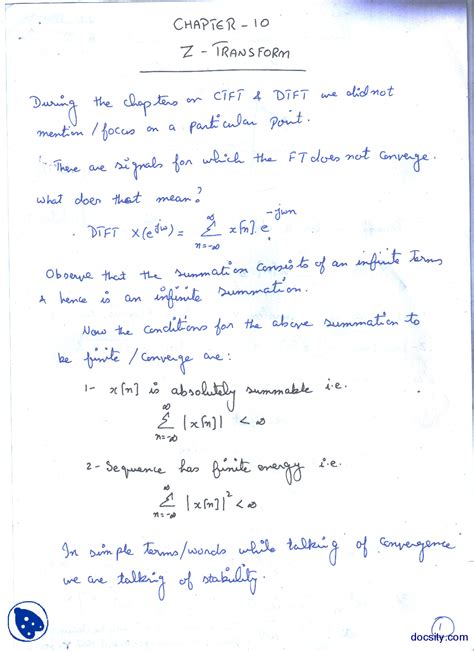 CHAPTER - 10
Z - TRANSFORM
During the chapters on CTFT & DTFT we did not
mention / focus on a particular point.
There are signals for which the FT does not converge.
What does that mean?
DTFT X(e^{jω}) = ∑_{n=-∞}^{∞} x[n] e^{-jωn}
Observe that the summation consists of an infinite terms
& hence is an infinite summation.
Now the conditions for the above summation to
be finite / converge are:
1- x[n] is absolutely summable i.e.
∑_{n=-∞}^{∞} |x[n]| < ∞
2- Sequence has finite energy i.e.
∑_{n=-∞}^{∞} |x[n]|² < ∞
In simple terms/words while talking of convergence
we are talking of stability.
1
docsity.com